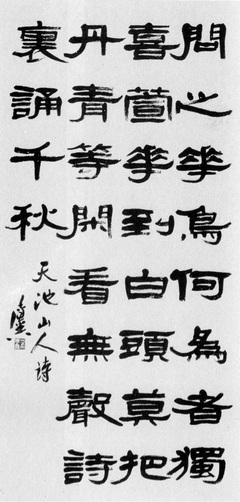 問之華鳥何為者獨
喜萱華到白頭莫把
丹青等閑看無聲詩
裏誦千秋
天池山人詩